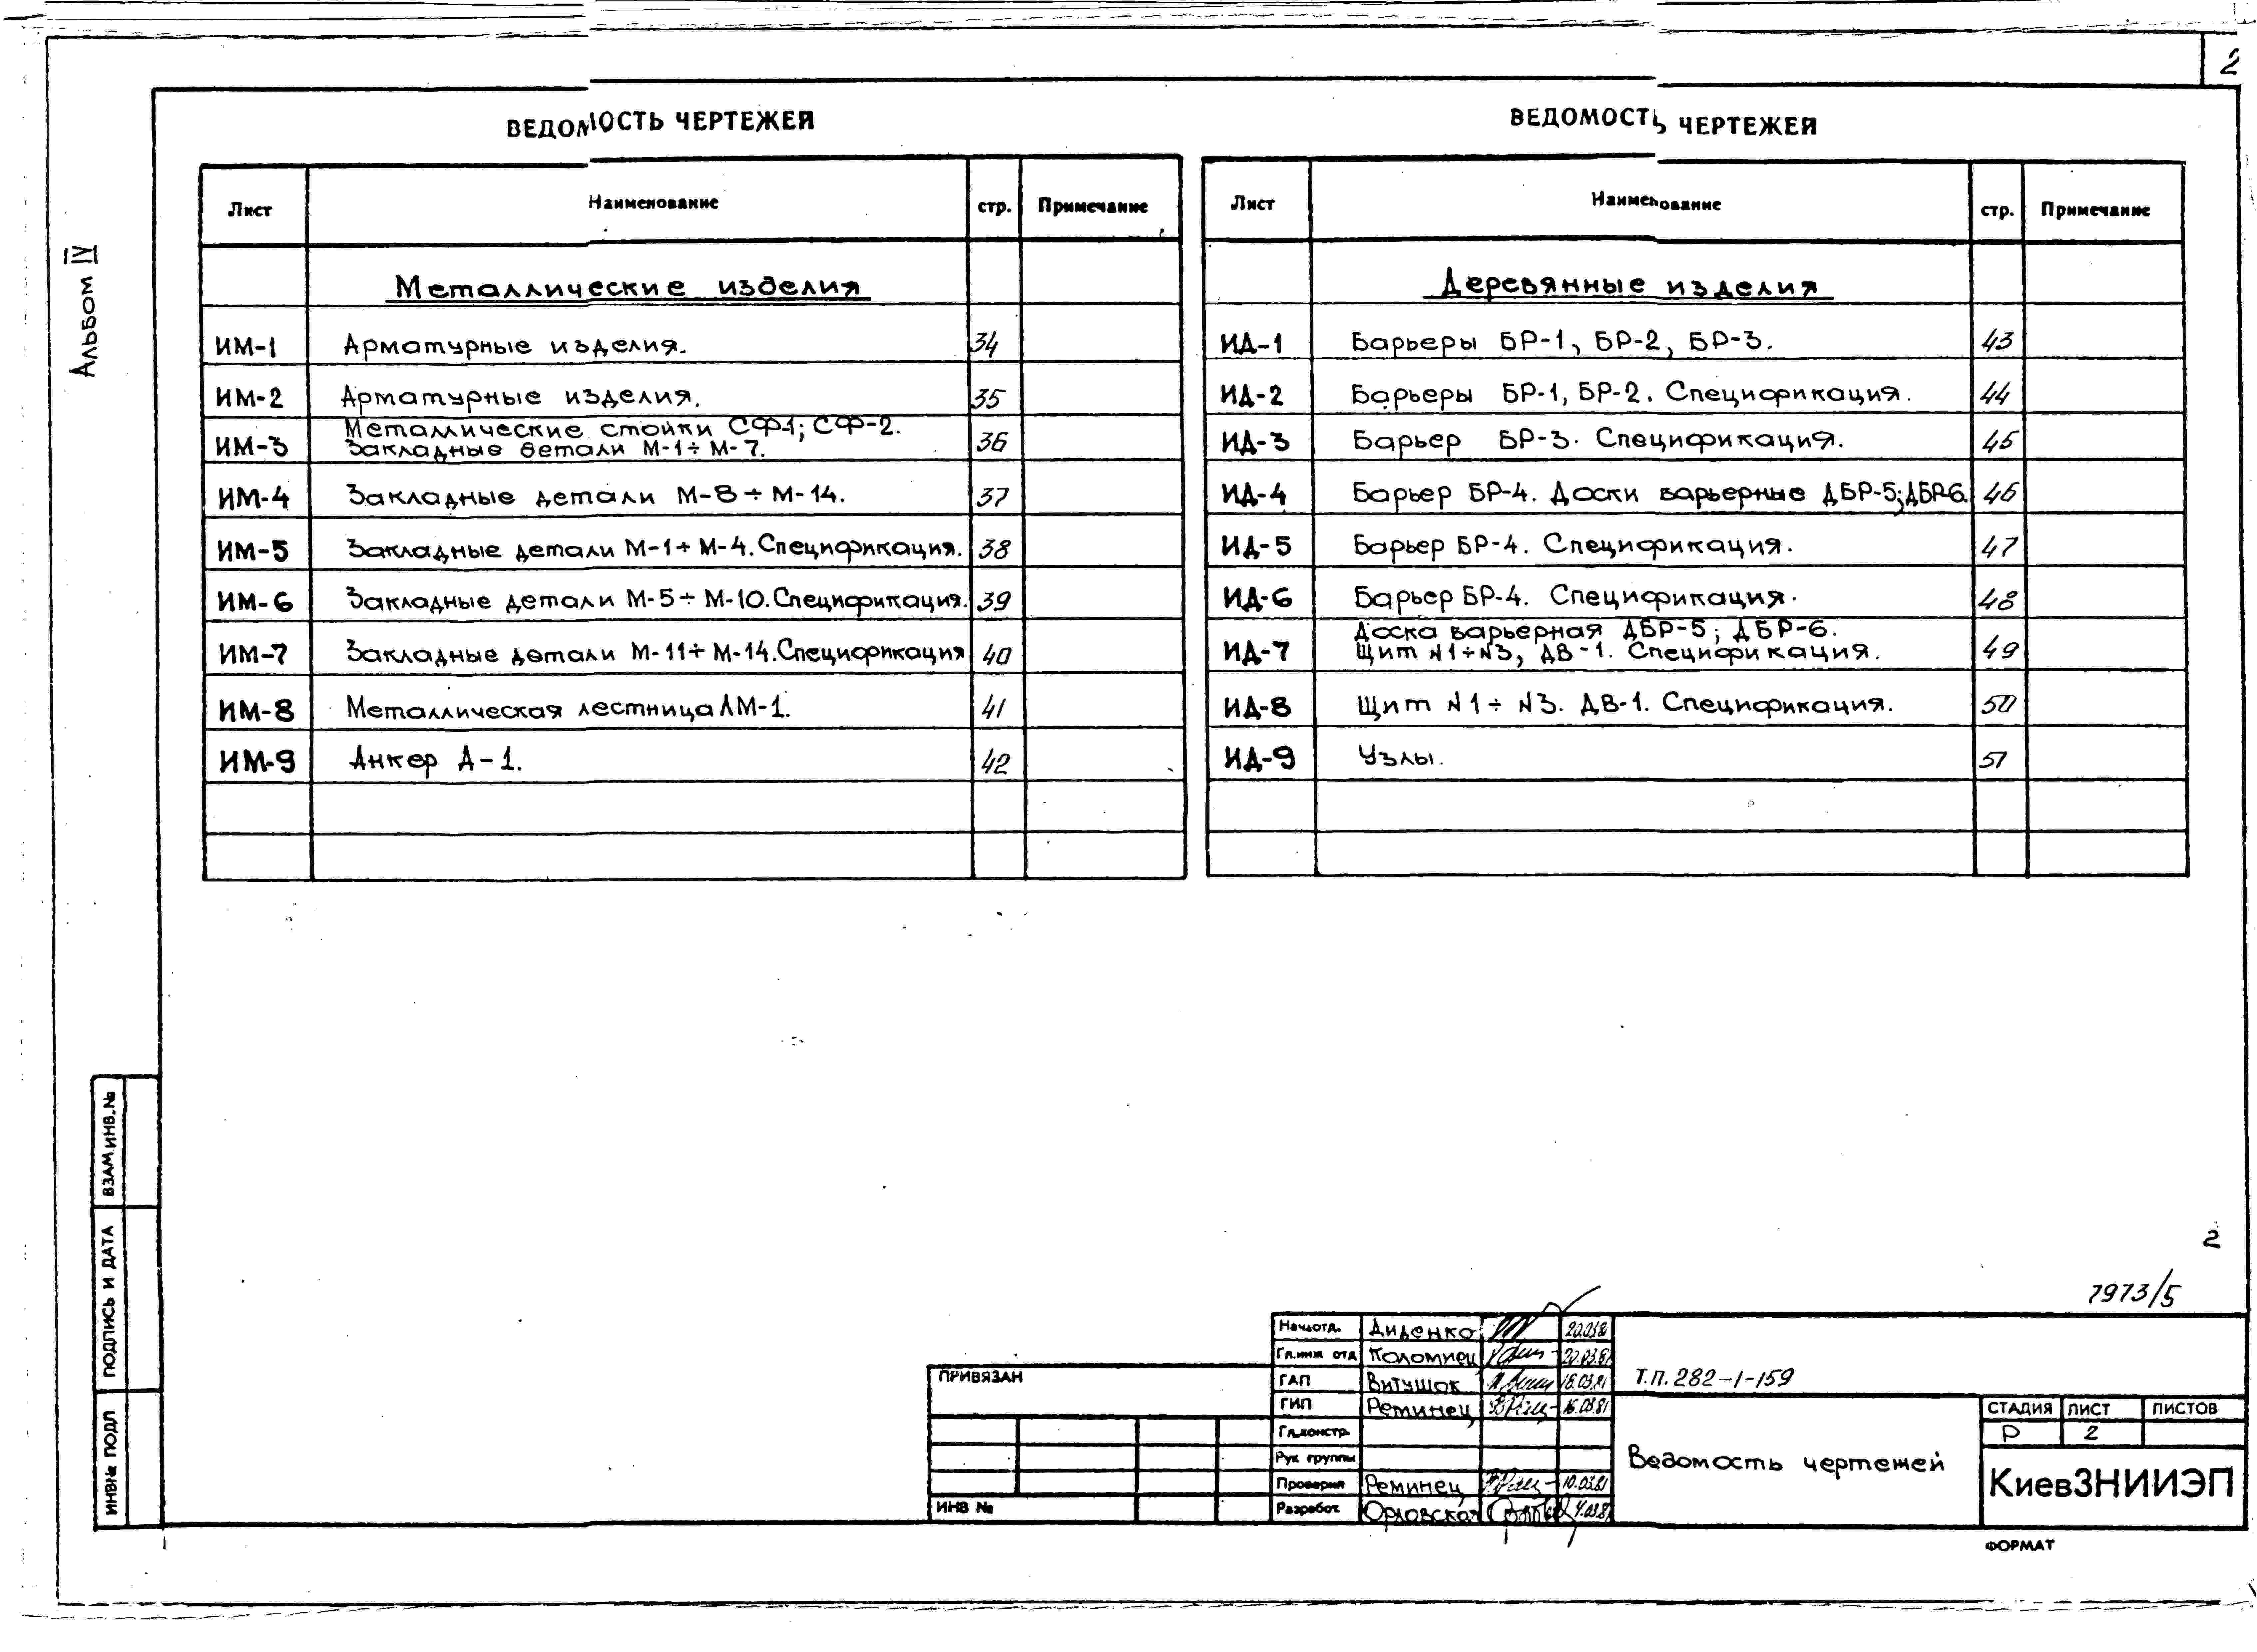 2
Альбом IV
ВЕДОМОСТЬ ЧЕРТЕЖЕЙ
Лист Наименование стр. Примечание
Металлические изделия
ИМ-1 Арматурные изделия. 34
ИМ-2 Арматурные изделия. 35
Металлические стойки СФ-1; СФ-2.
ИМ-3 Закладные детали М-1÷М-7. 36
ИМ-4 Закладные детали М-8÷М-14. 37
ИМ-5 Закладные детали М-1÷М-4. Спецификация. 38
ИМ-6 Закладные детали М-5÷М-10. Спецификация. 39
ИМ-7 Закладные детали М-11÷М-14. Спецификация 40
ИМ-8 Металлическая лестница ЛМ-1. 41
ИМ-9 Анкер А-1. 42
ВЕДОМОСТЬ ЧЕРТЕЖЕЙ
Лист Наименование стр. Примечание
Деревянные изделия
ИД-1 Барьеры БР-1, БР-2, БР-3. 43
ИД-2 Барьеры БР-1, БР-2. Спецификация. 44
ИД-3 Барьер БР-3. Спецификация. 45
ИД-4 Барьер БР-4. Доски барьерные ДБР-5; ДБР-6. 46
ИД-5 Барьер БР-4. Спецификация. 47
ИД-6 Барьер БР-4. Спецификация. 48
Доска барьерная ДБР-5; ДБР-6.
ИД-7 Щит N1÷N3, ДВ-1. Спецификация. 49
ИД-8 Щит N1÷N3. ДВ-1. Спецификация. 50
ИД-9 Узлы. 51
ВЗАМ.ИНВ.№
ПОДПИСЬ И ДАТА
ИНВ№ ПОДЛ
2
7973/5
ПРИВЯЗАН
ИНВ №
Нач.отд. Диденко 20.03.81
Гл.инж отд Коломиец 20.03.81
ГАП Витушок 16.03.81
ГИП Реминец 16.03.81
Гл.констр.
Рук группы
Проверил Реминец 10.03.81
Разработ. Орловская
Т.П. 282-1-159
Ведомость чертежей
СТАДИЯ ЛИСТ ЛИСТОВ
Р 2
КиевЗНИИЭП
ФОРМАТ